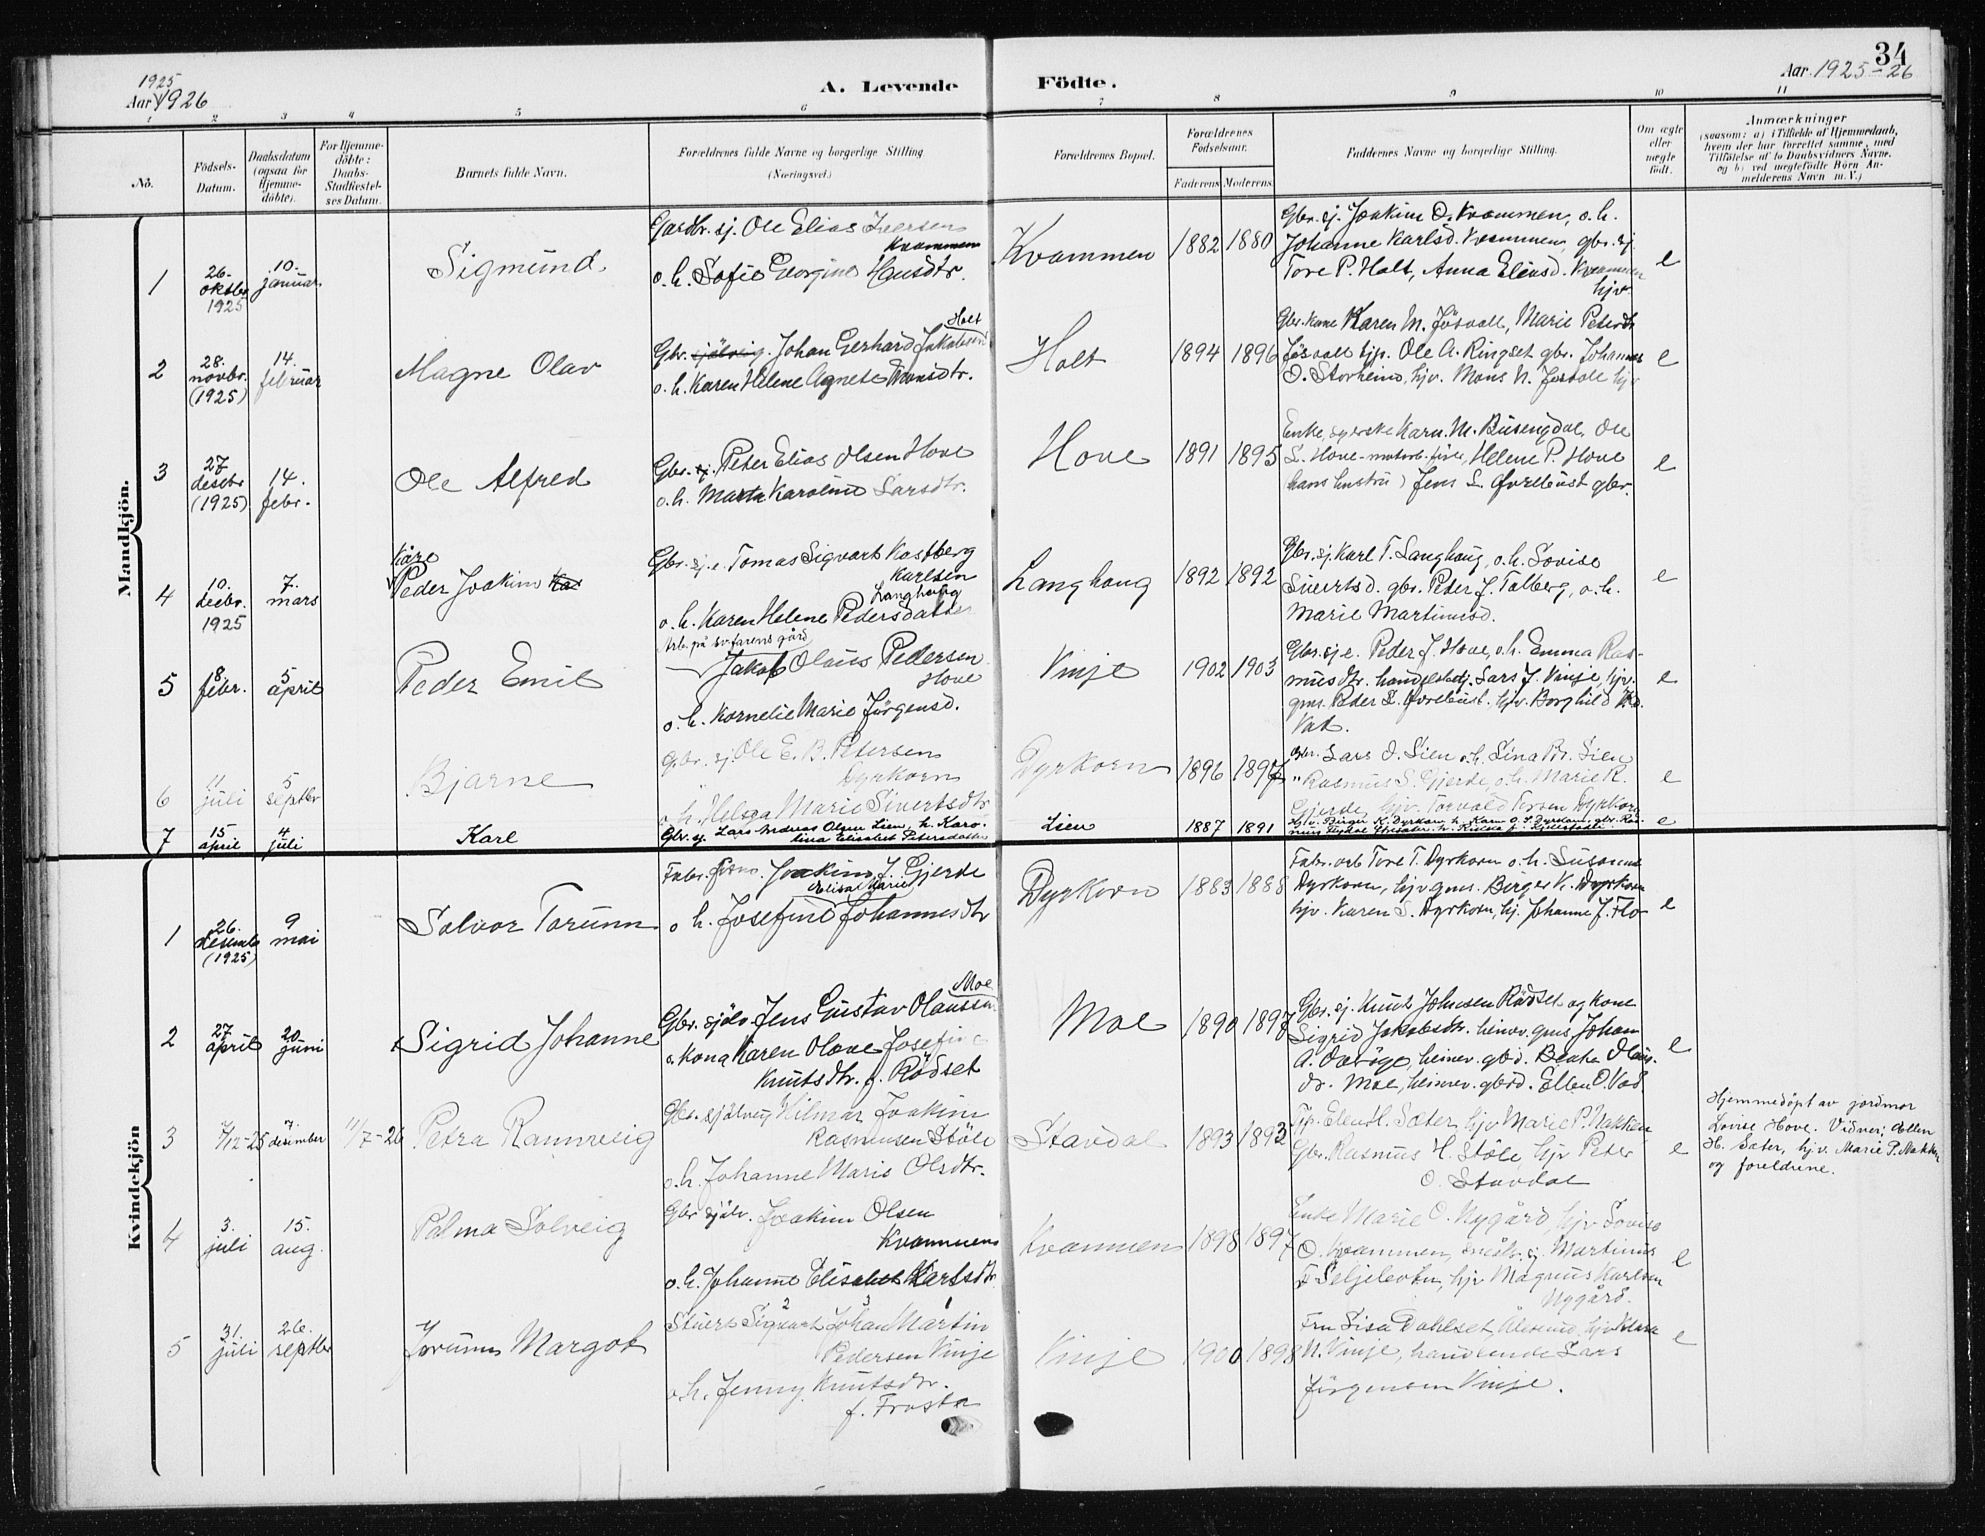 34
1925
Aar 1926
A. Levende
Födte.
Aar 1925-26
1 2 3 4 5 6 7 8 9 10 11
Nò.
Födsels-
Datum.
Daabsdatum
(ogsaa for
Hjemme-
döbte).
For Hjemme-
döbte:
Daabs-
Stadfæstel-
ses Datum.
Barnets fulde Navn.
Forældrenes fulde Navne og borgerlige Stilling
(Næringsvei.)
Forældrenes Bopæl.
Forældrenes
Fødselsaar.
Faderens Moderens
Faddernes Navne og borgerlige Stilling.
Om ægte
eller
uægte
født.
Anmærkninger
(saasom: a) i Tilfælde af Hjemmedaab,
hvem der har forrettet samme, med
Tilføielse af to Daabsvidners Navne,
og b) ved uægtefödte Börn An-
melderens Navn m. V.)
Mandkjön.
1
26.
oktbr
1925
10.
januar
Sigmund
Gardbr. sj. Ole Elias Iversen
Kvammen
o. h. Sofie Georgine Hansdtr.
Kvammen
1882 1880
Gbr. sj. Joakim O. Kvammen, o. h.
Johanne Karlsd. Kvammen, gbr. sj
Tore P. Holt, Anna Eliasd. Kvammen
hjv.
e
2
28.
novbr.
(1925)
14
februar
Magne Olav
Holt
Gbr. sjølveig. Johan Gerhard Jakobsen
o. h. Karen Helene Agnete Monsdtr.
Holt
1894 1896
Gbr. kone Karen M. Jøsvoll, Marie Petersdtr
Jøsvoll hjv. Ole A. Ringset gbr. Johannes
O. Storheim, hjv. Mons N. Jøsvoll hjv
e
3
27
desebr
(1925)
14.
febr.
Ole Alfred
Gbr. sj. Peter Elias Olsen Hove
o. h. Marta Karoline Larsdtr.
Hove
1891 1895
Enke, syerske Karn. M. Busengdal, Ole
L. Hove - motorb. fører, Helene P. Hove
hans hustru) Jens L. Øvrebust gbr.
e
4
10.
decbr.
1925
7.
mars
Kåre
Peder Joakim
Gbr. sj. e. Tomas Sigvart Kastberg
Karlsen
Langhaug
o. h. Karen Helene Pedersdatter
Langhaug
1892 1892
Gbr. sj. Karl T. Langhaug, o. h. Lovise
Sivertsd. gbr. Peter J. Talberg, o. h.
Marie Martinusd.
e
5
8
febr.
5
april
Peder Emil
Arb. på sv. farens gård
Jakob Olaus Pedersen
Hove
o. h. Kornelie Marie Jörgensd.
Vinje
1902 1903
Gbr. sj e. Peder J. Hove, o. h. Emma Ras-
musdtr. handelsbetj. Lars J. Vinje, hjv.
gms. Peder L. Øvrebust. hjv. Borghild
Vad.
e
6
11
juli
5
septbr
Bjarne
Gbr. sj Ole E. B. Petersen
Dyrkorn
o. h. Helga Marie Sivertsdtr
Dyrkorn
1896 1897
Gbr. Lars O. Lien o. h. Lina Lien
" Rasmus S. Gjerde, o. h. Marie R.
Gjerde, hjv. Torvald Torsen Dyrkorn
e
7
15
april
4
juli
Karl
Gbr. sj. Lars Andreas Olsen Lien, h. Karo-
lina Elisabet Petersdatter
Lien
1887 1891
hjv. Birger K. Dyrkorn, h. Karn O. S. Dyrkorn, gbr. Ras-
e
Kvindekjön
1
26.
desemb
(1925)
9
mai
Solvor Torunn
Fabr. form. Joakim J. Gjerde
Elisa Marie
o h. Josefine Johannesdtr
Dyrkorn
1883 1888
Fabr. arb Tore T. Dyrkorn o. h. Susanne
Dyrkorn, hjv gms. Birger K. Dyrkorn
hjv. Karen S. Dyrkorn, hj. Johanne J. Flo
e
2
27
april
20.
juni
Sigrid Johanne
Moe
Gbr. sjölv. Jens Gustav Olaussen
o. kona Karen Olave Josefine
Knutsdtr. f. Rödset
Moe
1890 1897
Gbr. sj. Knut Johnsen Rödset og kone
Sigrid Jakobsdtr. heimv. gms. Johan
A. Overöye, heimv. gbd. Beate Olaus-
dr. Moe, heimv. gbrd. Ellen O. Vad.
e
3
7/12-25
7.
desember
11/7-26
Petra Rannveig
Gbr. sjölveig Hilmar Joakim
Rasmussen Stöle
o. h. Johanne Marie Olsdtr.
Stavdal
1893 1892
Tp. Elen H. Sæter, hjv Marie P. Nakken
Gbr. Rasmus H. Stöle, hjv Peter
O. Stavdal
e
Hjemmedöpt av jordmor
Lovise Hove. Vidner: Ellen
H. Sæter, hjv. Marie P. Nakken
og foreldrene.
4
3.
juli
15.
aug.
Palma Solveig
Gbr sjölv. Joakim Olsen
Kvammen
o. h. Johanne Elisabet Karlsdtr
Kvammen
1898 1897
Enke Marie O. Nygård, hjv Lovise
O. Kvammen, småbr. sj. Martinus
Seljeboten, hjv Magnus Karlsen
Nygård.
e
5
31.
juli
26.
septbr
Jorunn Margot
2 3 1
Stuert Sigvart Johan Martin
Pedersen Vinje
o. h. Jenny Knutsdtr.
f. Frosta
Vinje
1900 1898
Fru Lisa Dahlset, Ålesund, hjv. Klara
N. Vinje, handlende Lars
Jörgensen Vinje.
e